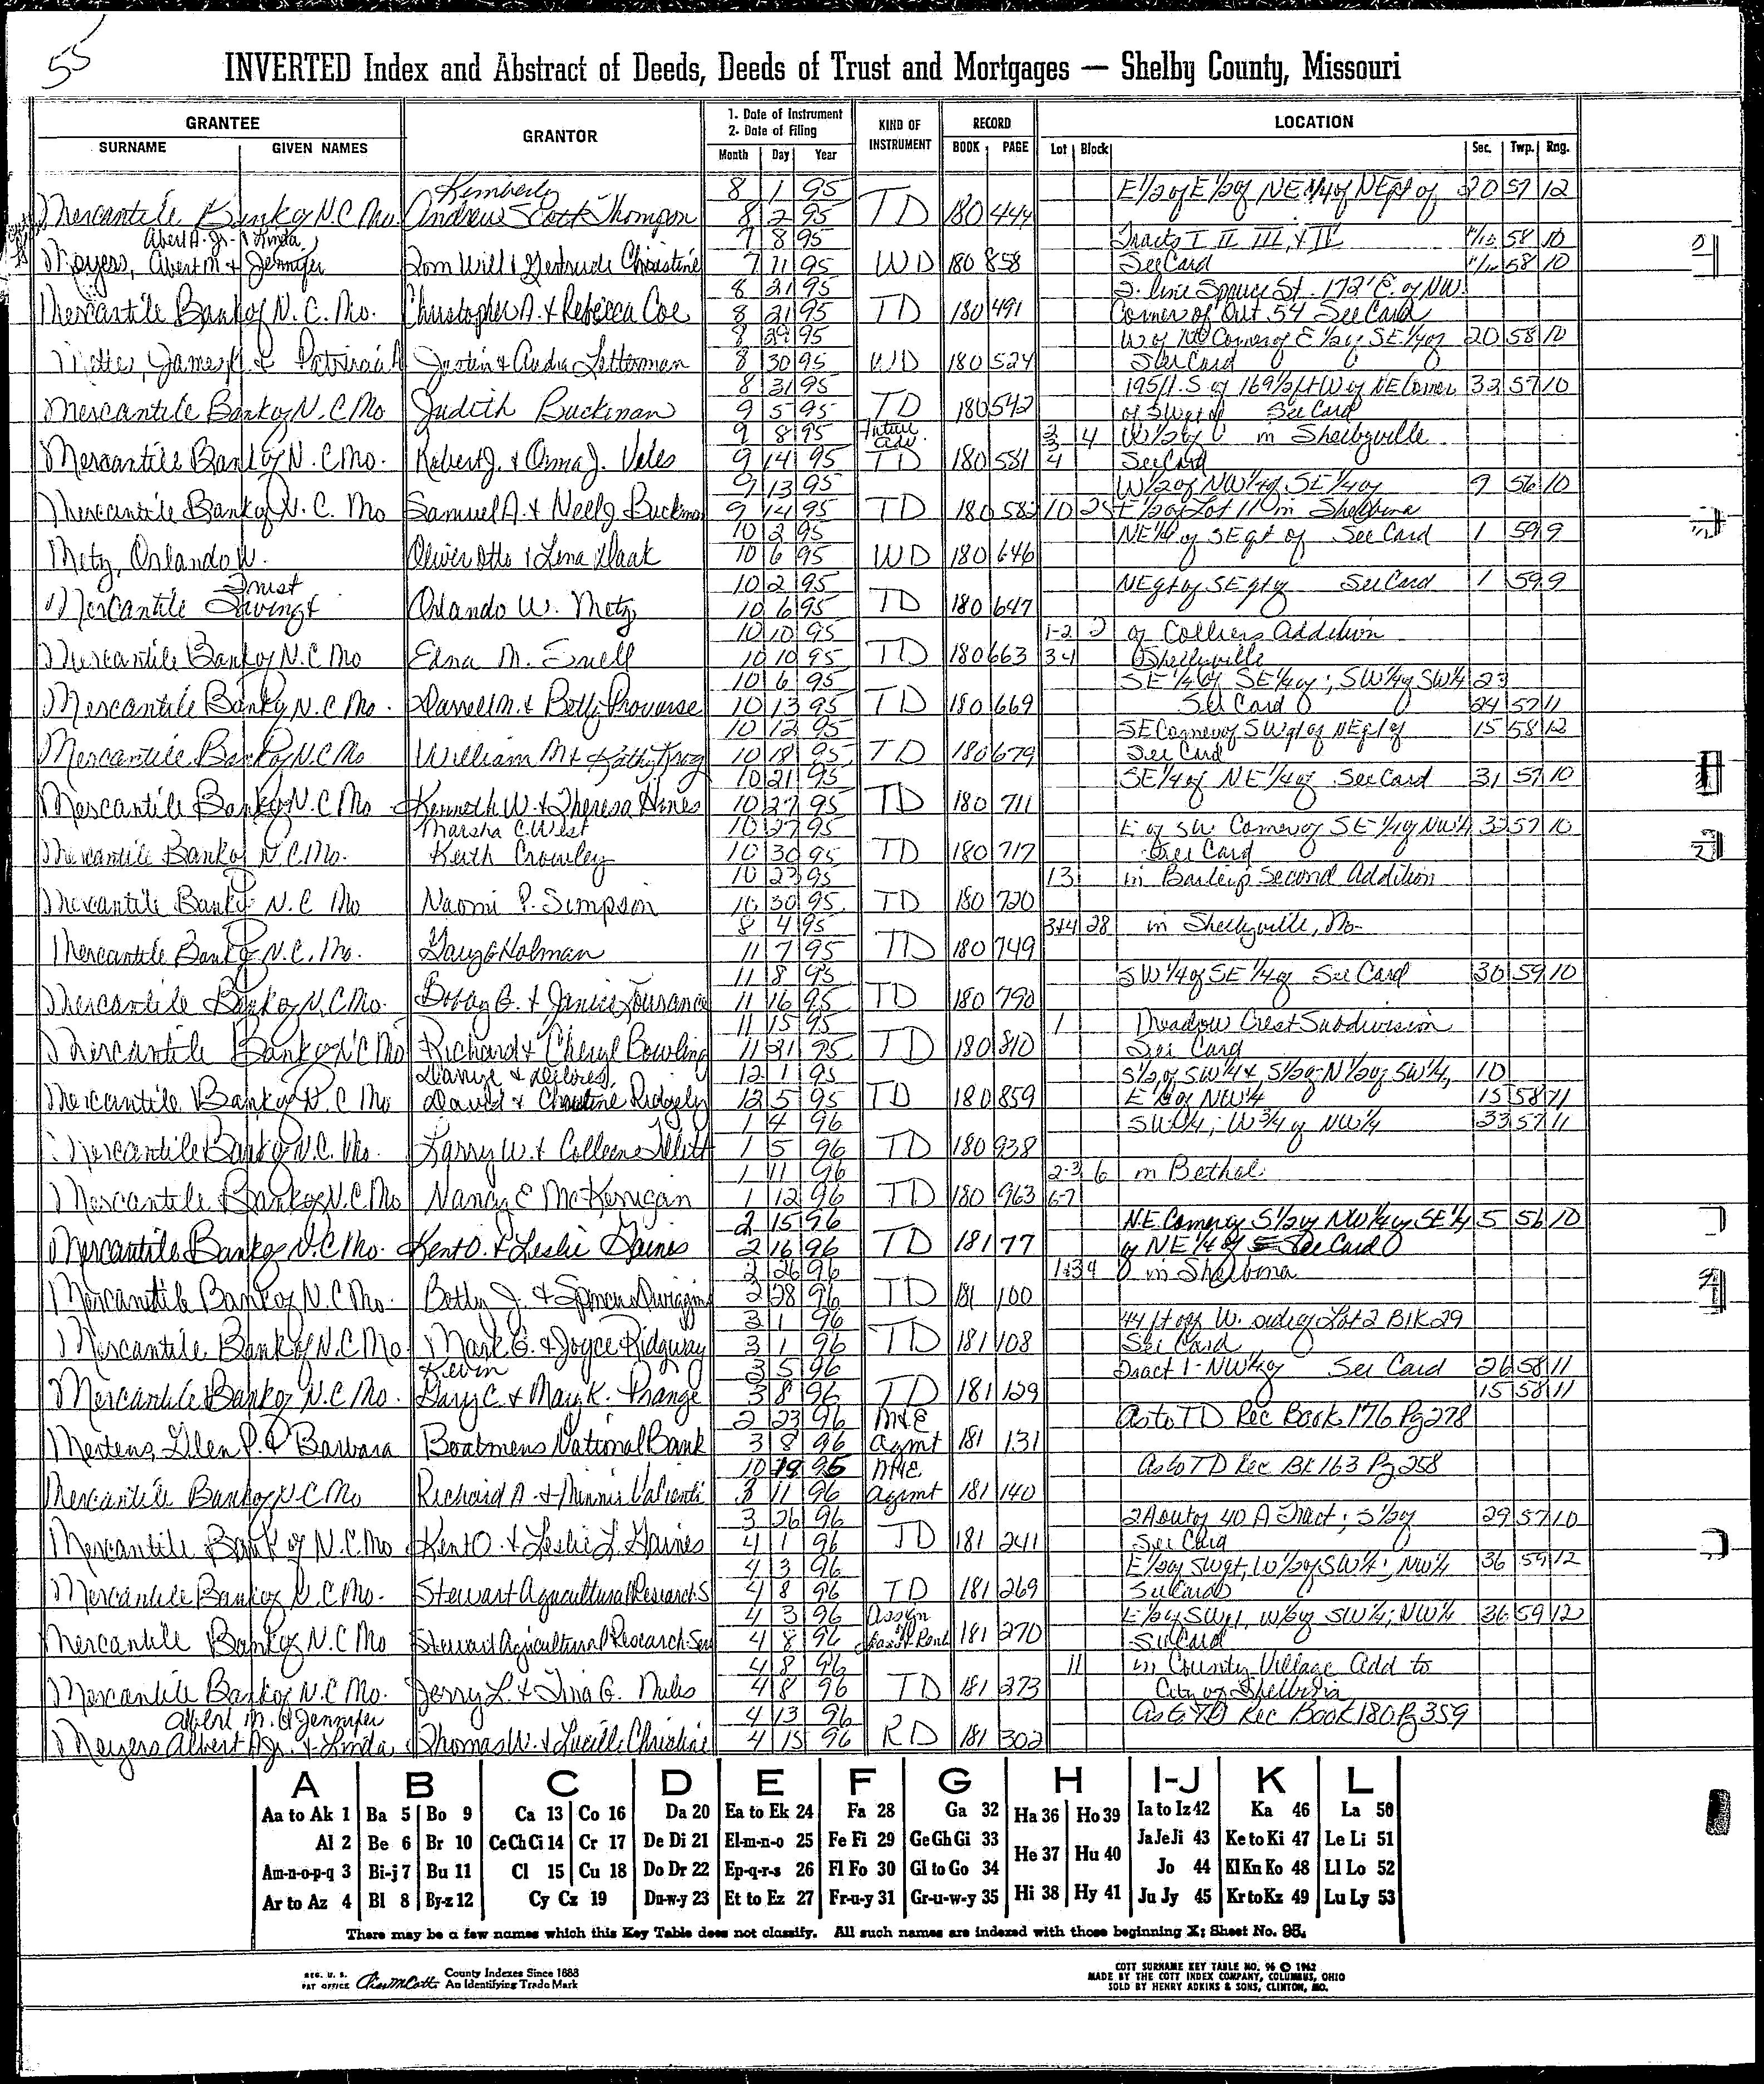 55
INVERTED Index and Abstract of Deeds, Deeds of Trust and Mortgages — Shelby County, Missouri
GRANTEE GRANTOR 1. Date of Instrument 2. Date of Filing KIND OF INSTRUMENT RECORD LOCATION
SURNAME GIVEN NAMES Month Day Year BOOK PAGE Lot Block Sec. Twp. Rng.
Kimberly 8 1 95 E 1/2 of E 1/2 of NE 1/4 of NE qt of 20 57 12
Mercantile Bank of N.C. Mo. Andrew Scott Thompson 8 2 95 TD 180 444
Abert A. Jr. & Linda 7 8 95 Tracts I II III, & IV 58 10
Moyers, Abert M & Jennifer Tom Will & Gertrude Christine 7 11 95 WD 180 858 See Card 58 10
8 21 95 S. line Spruce St. 172' E. of NW
Mercantile Bank of N.C. Mo. Christopher A. & Rebecca Coe 8 21 95 TD 180 491 Corner of Out 54 See Card
8 29 95 W of NE Corner of E 1/2 of SE 1/4 of 20 58 10
James & Patricia A Justin & Audra Letterman 8 30 95 WD 180 524 See Card
8 31 95 195 ft. S of 169 1/2 ft W of NE Corner 33 57 10
Mercantile Bank of N.C. Mo Judith Buckman 9 5 95 TD 180 542 of SW qt of See Card
9 8 95 Future Adv. 2 3 4 W 1/2 of in Shelbyville
Mercantile Bank of N.C. Mo. Robert J. & Orma J. Veles 9 14 95 TD 180 581 4 See Card
9 13 95 W 1/2 of NW 1/4 of SE 1/4 of 9 56 10
Mercantile Bank of N.C. Mo Samuel A. & Nelly Buckman 9 14 95 TD 180 582 10 25 E 1/2 of Lot 11 in Shelbina
10 2 95 NE 1/4 of SE qt of See Card 1 59 9
Metz, Orlando W. Oliver Otto & Lena Haak 10 6 95 WD 180 646
Trust 10 2 95 NE qt of SE qt of See Card 1 59 9
Mercantile Savings & Orlando W. Metz 10 6 95 TD 180 647
10 10 95 1-2 2 of Colliers Addition
Mercantile Bank of N.C. Mo Edna M. Snell 10 10 95 TD 180 663 3 4 Shelbyville
10 6 95 SE 1/4 of SE 1/4 of; SW 1/4 of SW 1/4 23
Mercantile Bank of N.C. Mo. Darrell M. & Betty Prouarse 10 13 95 TD 180 669 See Card 24 57 11
10 12 95 SE Corner of SW qt of NE qt of 15 58 12
Mercantile Bank of N.C. Mo William M & Kathy Krog 10 18 95 TD 180 679 See Card
10 21 95 SE 1/4 of NE 1/4 of See Card 31 57 10
Mercantile Bank of N.C. Mo Kenneth W. & Theresa Hines 10 27 95 TD 180 711
Marsha C. West 10 27 95 E of SW Corner of SE 1/4 of NW 1/4 33 57 10
Mercantile Bank of N.C. Mo. Keith Crowley 10 30 95 TD 180 717 See Card
10 23 95 13 in Barleips Second Addition
Mercantile Bank of N.C. Mo Naomi P. Simpson 10 30 95 TD 180 720
8 4 95 3&4 28 in Shelbyville, Mo-
Mercantile Bank of N.C. Mo. Gary G Holman 11 7 95 TD 180 749
11 8 95 SW 1/4 of SE 1/4 of See Card 30 59 10
Mercantile Bank of N.C. Mo. Bobby G. & Janice Tourance 11 16 95 TD 180 790
11 15 95 1 Meadow Crest Subdivision
Mercantile Bank of N.C. Mo Richard & Cheryl Bowling 11 21 95 TD 180 810 See Card
& Delores, 12 1 95 S 1/2 of SW 1/4 & S 1/2 of N 1/2 of SW 1/4, 10
Mercantile Bank of N.C. Mo David & Christine Ridgely 12 5 95 TD 180 859 E 1/2 of NW 1/4 15 58 11
1 4 96 SW 1/4; W 3/4 of NW 1/4 33 57 11
Mercantile Bank of N.C. Mo. Larry W. & Colleen 1 5 96 TD 180 938
1 11 96 2-3 6 in Bethel
Mercantile Bank of N.C. Mo Nancy E McKernigan 1 12 96 TD 180 963 6-7
2 15 96 N.E. Corner of S 1/2 of NW 1/4 of SE 1/4 5 56 10
Mercantile Bank of N.C. Mo. Kent O. & Leslie Gaines 2 16 96 TD 181 77 of NE 1/4 of See Card
2 26 96 in Shelbina
Mercantile Bank of N.C. Mo. Betty J. & Spencer Dwiggins 2 28 96 TD 181 100
3 1 96 44 ft off W. side of Lot 2 Blk 29
Mercantile Bank of N.C. Mo Mark G. & Joyce Ridgway 3 1 96 TD 181 108 See Card
Kevin 3 5 96 Tract 1-NW 1/4 of See Card 26 58 11
Mercantile Bank of N.C. Mo. Gary C. & Mary K. Prange 3 8 96 TD 181 129 15 58 11
2 23 96 M&E As to TD Rec Book 176 Pg 278
Mertens, Glen P. & Barbara Boatmens National Bank 3 8 96 Agmt 181 131
10 19 95 M&E As to TD Rec Bk 163 Pg 258
Mercantile Bank of N.C. Mo Richard A. & Minnie Valienti 3 11 96 Agmt 181 140
3 26 96 2A out of 40 A Tract; S 1/2 of 29 57 10
Mercantile Bank of N.C. Mo Kent O. & Leslie L. Gaines 4 1 96 TD 181 241 See Card
4 3 96 E 1/2 of SW qt, W 1/2 of SW 1/4; NW 1/4 36 59 12
Mercantile Bank of N.C. Mo. Stewart Agricultural Research S 4 8 96 TD 181 269 See Card
4 3 96 Assign E 1/2 of SW qt, W 1/2 of SW 1/4; NW 1/4 36 59 12
Mercantile Bank of N.C. Mo Stewart Agricultural Research Ser 4 8 96 Leas & Rent 181 270 See Card
4 8 96 11 in County Village Add to
Mercantile Bank of N.C. Mo. Jerry L. & Tina G. Miles 4 8 96 TD 181 273 City of Shelbina
Albert M. & Jennifer 4 13 96 As to TD Rec Book 180 Pg 359
Meyers Albert A Jr. & Linda Thomas W. & Lucille Christine 4 15 96 RD 181 302
A B C D E F G H I-J K L
Aa to Ak 1 Ba 5 Bo 9 Ca 13 Co 16 Da 20 Ea to Ek 24 Fa 28 Ga 32 Ha 36 Ho 39 Ia to Iz 42 Ka 46 La 50
Al 2 Be 6 Br 10 Ce Ch Ci 14 Cr 17 De Di 21 El-m-n-o 25 Fe Fi 29 Ge Gh Gi 33 He 37 Hu 40 Ja Je Ji 43 Ke to Ki 47 Le Li 51
Am-n-o-p-q 3 Bi-j 7 Bu 11 Cl 15 Cu 18 Do Dr 22 Ep-q-r-s 26 Fl Fo 30 Gl to Go 34 Hi 38 Hy 41 Jo 44 Kl Kn Ko 48 Ll Lo 52
Ar to Az 4 Bl 8 By-z 12 Cy Cz 19 Du-w-y 23 Et to Ez 27 Fr-u-y 31 Gr-u-w-y 35 Ju Jy 45 Kr to Kz 49 Lu Ly 53
There may be a few names which this Key Table does not classify. All such names are indexed with those beginning X; Sheet No. 95.
REG. U. S. PAT OFFICE County Indexes Since 1888 An Identifying Trade Mark
COTT SURNAME KEY TABLE NO. 96 © 1962
MADE BY THE COTT INDEX COMPANY, COLUMBUS, OHIO
SOLD BY HENRY ADKINS & SONS, CLINTON, MO.